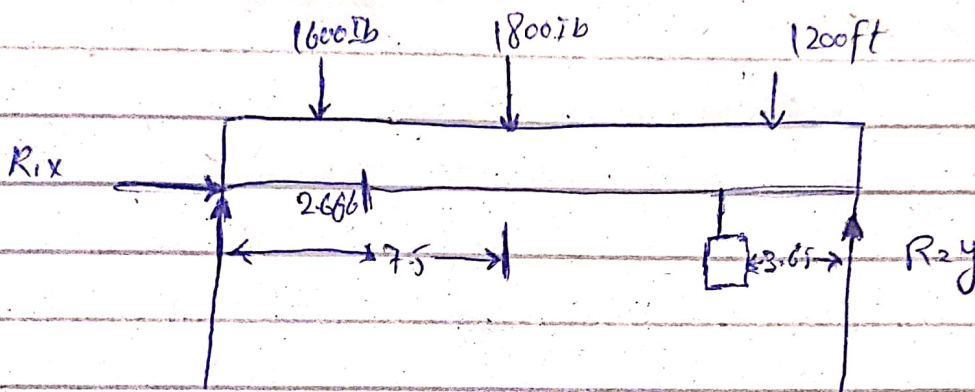 1600Ib. 1800ib 1200ft
R1x
2.666
7.5 3.65 R2y